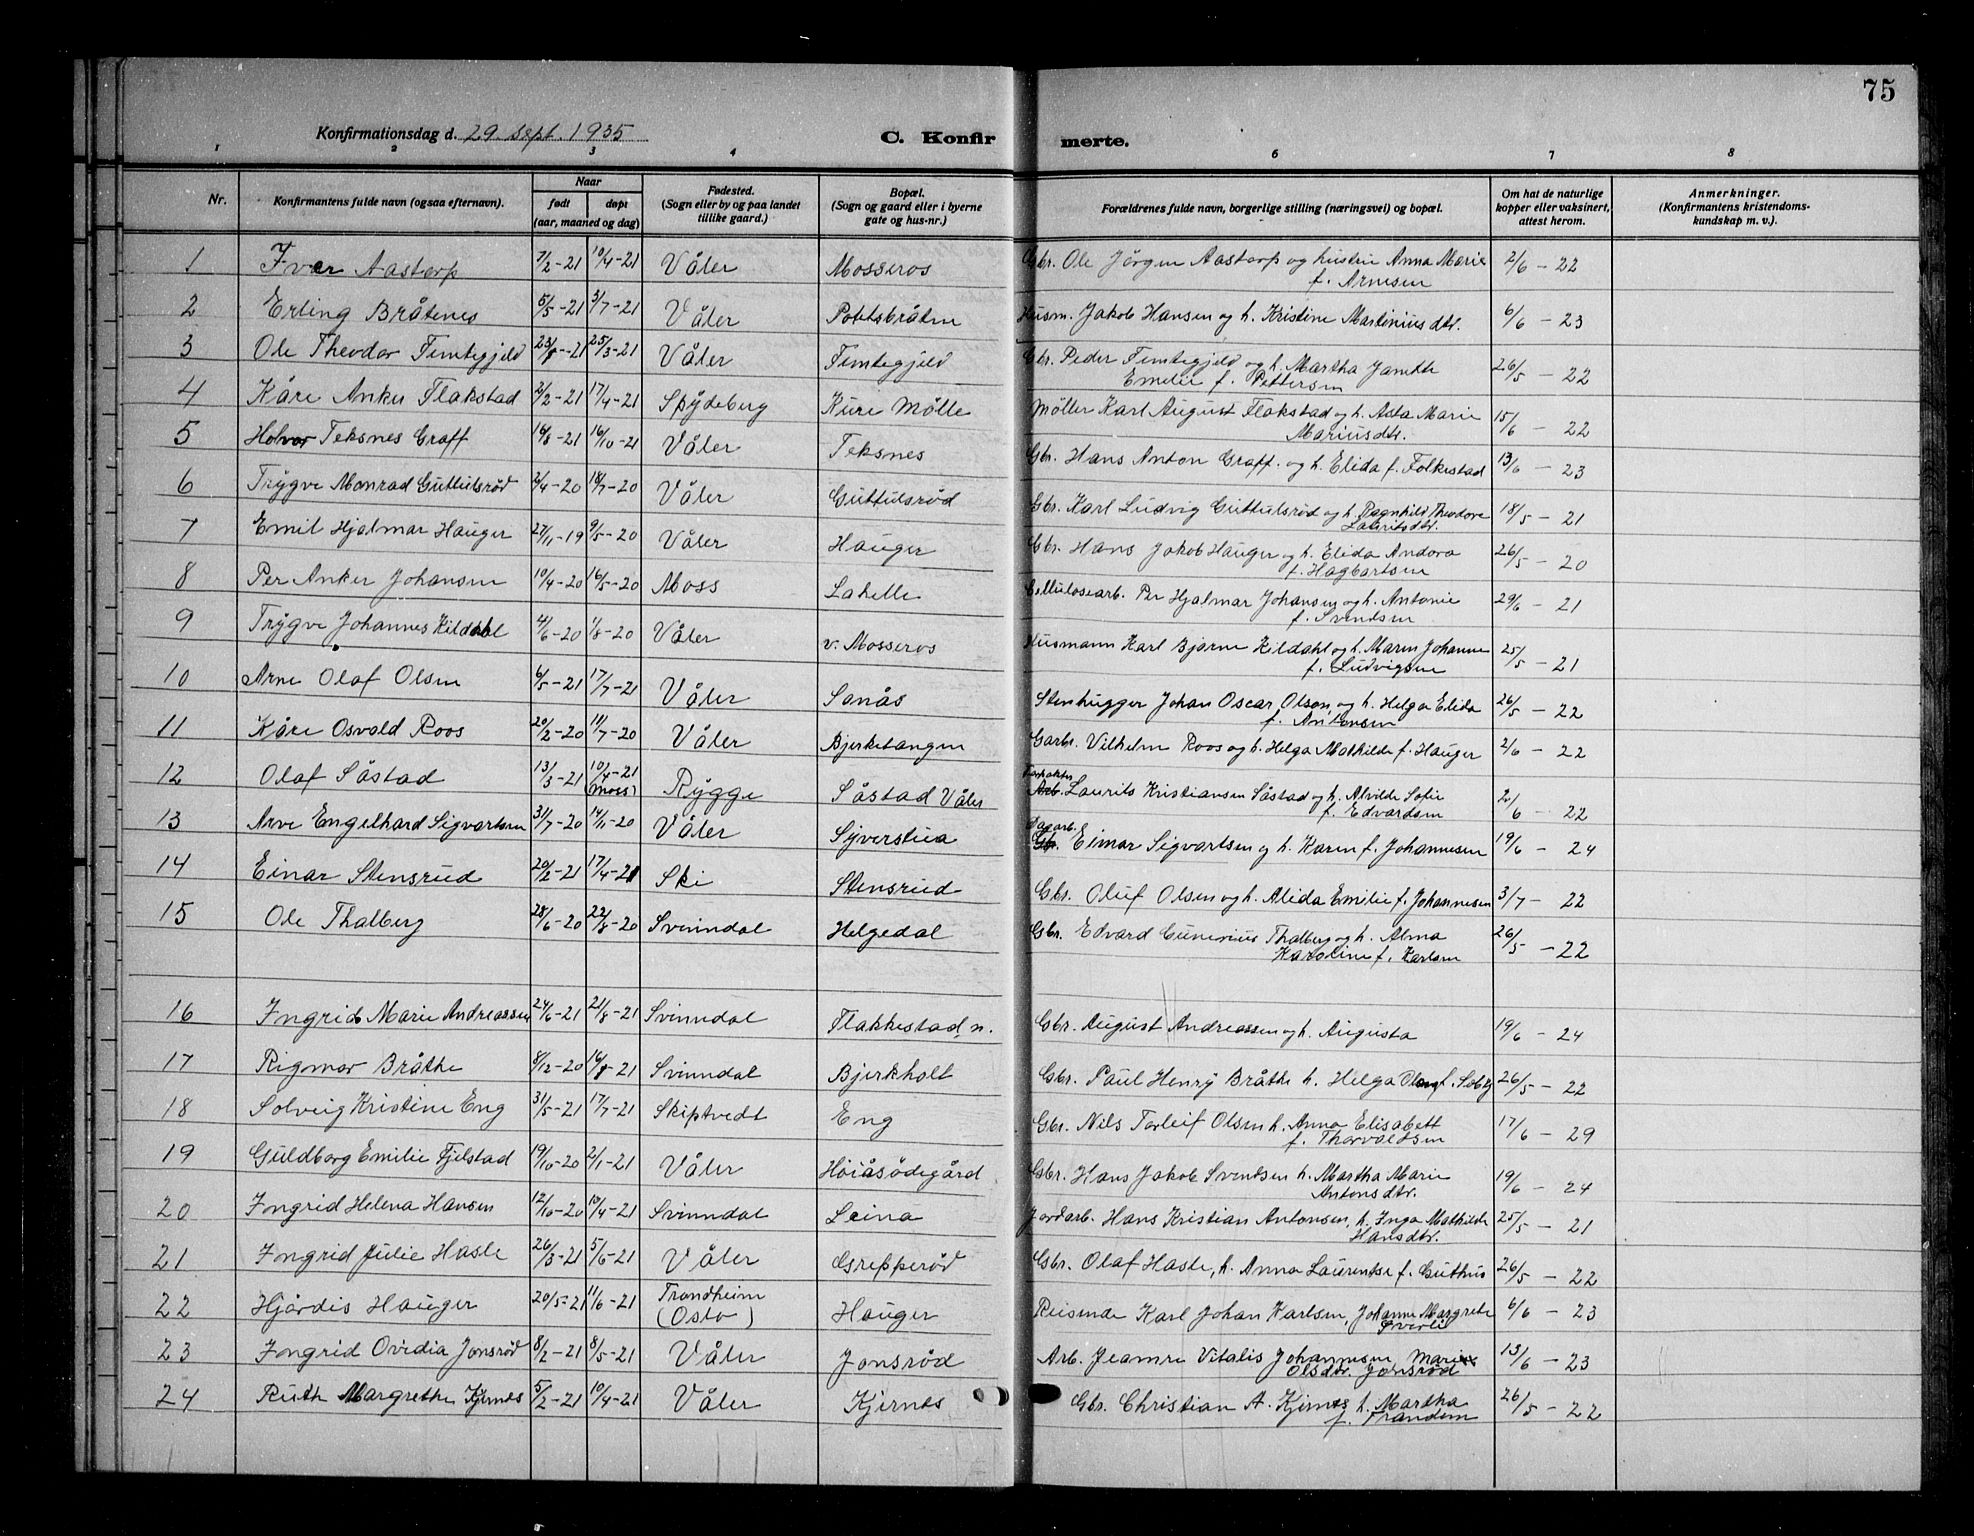 75
Konfirmationsdag d. 29. sept. 1935
C. Konfir
merte.
1 2 3 4 6 7 8
Nr.
Konfirmantens fulde navn (ogsaa efternavn).
Naar
født døpt
(aar, maaned og dag)
Fødested.
(Sogn eller by og paa landet
tillike gaard.)
Bopæl.
(Sogn og gaard eller i byerne
gate og hus-nr.)
Forældrenes fulde navn, borgerlige stilling (næringsvei) og bopæl.
Om hat de naturlige
kopper eller vaksinert,
attest herom.
Anmerkninger.
(Konfirmantens kristendoms-
kundskap m. v.).
1 Iver Aastorp 7/2-21 10/4-21 Våler Mosseros Gbr. Ole Jörgen Aastorp og hustru Anna Marie 2/6 - 22
f. Arnesen
2 Erling Bråtenes 5/5-21 3/7-21 Våler Pottsbråten Husm. Jakob Hansen og h. Kristine Martinius dtr. 6/6 - 23
3 Ole Theodor Femtegjeld 25/3-21 Våler Femtegjeld Gbr. Peder Femtegjeld og h. Martha Janette 26/5 - 22
Emelie f. Pettersen
4 Kåre Anker Flakstad 2/2-21 17/4-21 Spydeberg Kure Mölle Möller Karl August Flakstad og h. Asta Marie 15/6 - 22
Mariusdtr.
5 Holvor Teksnes Graff 16/8-21 16/10-21 Våler Teksnes Gbr. Hans Anton Graff. og h. Elida f. Folkestad 13/6 - 23
6 Trygve Monrad Guttulsröd 2/4-20 18/7-20 Våler Guttulsröd Gbr. Karl Ludvig Guttulsröd og h. Ragnhild Theodora 18/5 - 21
Lauritsdtr.
7 Emil Hjalmar Hauger 27/11-19 9/5-20 Våler Hauger Gbr. Hans Jakob Hauger og h. Elida Andora 26/5 - 20
f. Hagbartsen
8 Per Anker Johansen 10/4-20 16/5-20 Moss Lahelle Cellulosearb. Per Hjalmar Johansen og h. Antonie 29/6 - 21
f. Svendsen
9 Trygve Johannes Kildahl 4/6-20 1/8-20 Våler v. Mosseros Husmann Karl Bjarne Kildahl og h. Maren Johanne 25/5 - 21
f. Ludvigsen
10 Arne Olaf Olsen 6/5-21 17/7-21 Våler Sanås Stenhugger Johan Oscar Olson, og h. Helga Elida 26/5 - 22
f. Antonsen
11 Kåre Osvald Roos 20/2-20 11/7-20 Våler Bjerketangen Garbr. Vilhelm Roos og h. Helga Mathilde f. Hauger 2/6 - 22
12 Olaf Såstad 13/3-21 10/4-21 (Moss) Rygge Såstad Våler Forpakter
Arb. Laurits Kristiansen Såstad og h. Alvilde Sofie 2/6 - 22
f. Edvardsen
13 Arve Engelhard Sigvartsen 31/7-20 14/11-20 Våler Syverstua Dagarb.
Gbr. Eimar Sigvartsen og h. Karen f. Johannesen 19/6 - 24
14 Einar Stensrud 20/2-21 17/4-21 Ski Stensrud Gbr. Oluf Olsen og h. Alida Emilie f. Johannesen 3/7 - 22
15 Ole Thalberg 28/6-20 22/8-20 Svinndal Helgedal Gbr. Edvard Gunerius Thalberg og h. Alma 26/5 - 22
Karoline f. Karlsen
16 Ingrid Marie Andreassen 24/6-21 21/8-21 Svinndal Flakkestad, n. Gbr. August Andreassen og h. Augusta 19/6 - 24
17 Rigmor Bråthe 8/12-20 16/8-21 Svinndal Bjerkholt Gbr. Paul Henry Bråthe h. Helga Olsen f. Solby 26/5 - 22
18 Solveig Kristine Eng 31/5-21 17/7-21 Skiptvedt Eng Gbr. Nils Torleif Olsen h. Anna Elisabett 17/6 - 29
f. Thorvaldsen
19 Guldborg Emilie Fjelstad 19/10-20 2/1-21 Våler Höiåsödegård Gbr. Hans Jakob Svendsen h. Martha Marie 19/6 - 24
Antonsdtr.
20 Ingrid Helena Hansen 12/10-20 10/4-21 Svinndal Leina Jordarb. Hans Kristian Antonsen, h. Inga Mathilde 25/5 - 21
Hansdtr.
21 Ingrid Julie Hasle 26/3-21 5/6-21 Våler Grepperöd Gbr. Olaf Hasle, h. Anna Laurentse f. Guthus 26/5 - 22
22 Hjördis Hauger 20/5-21 11/6-21 Trondheim
(Oslo) Hauger Reisende Karl Johan Karlsen, Johanne Margrete 6/6 - 23
23 Ingrid Ovidia Jonsröd 8/2-21 8/5-21 Våler Jonsröd Arb. Jeamre Vitalis Johannesen Marie 13/6 - 23
Olsdtr. Jonsröd
24 Ruth Margrethe Kjernes 5/2-21 10/4-21 Våler Kjernes Gbr. Christian A. Kjernes h. Martha 26/5 - 22
f. Frandem